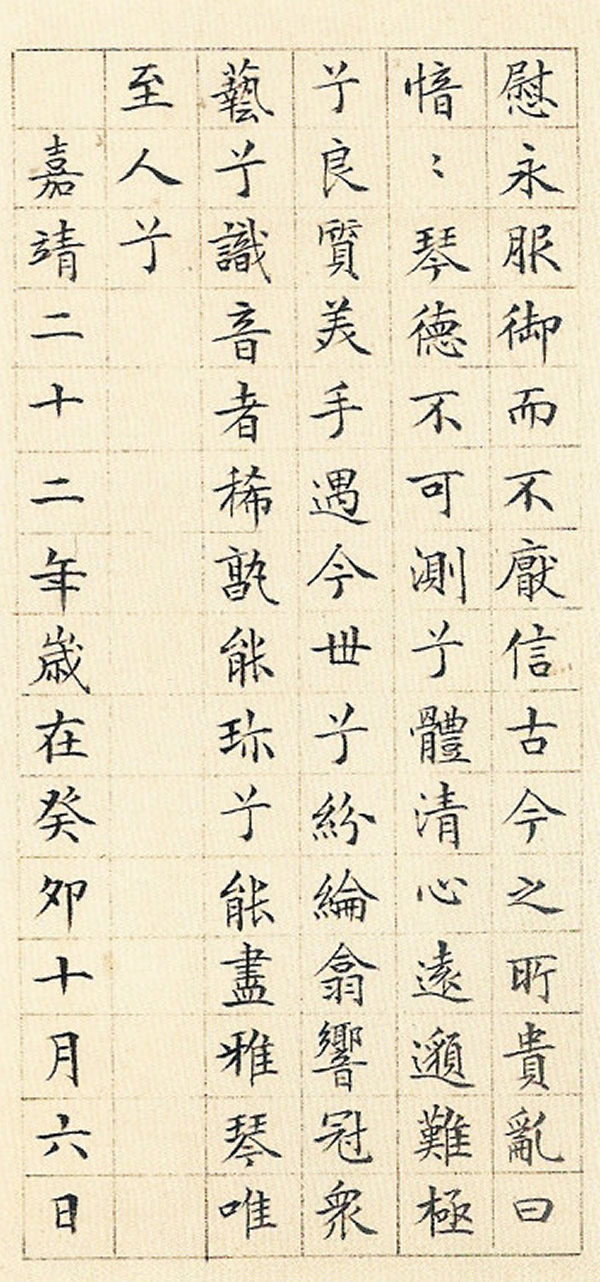 慰永服御而不厭信古今之所貴亂曰
愔〻琴德不可測兮體清心遠邈難極
兮良質美手遇今世兮紛綸翕響冠衆
藝兮識音者稀孰能珎兮能盡雅琴唯
至人兮
嘉靖二十二年歳在癸夘十月六日